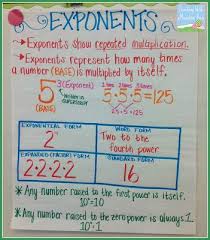 EXPONENTS
•Exponents show repeated multiplication.
•Exponents represent how many times
a number (BASE) is multiplied by itself.
5³ (Exponent) 1 time 2 times 3 times
5·5·5=125
(BASE)
EXPONENTIAL FORM WORD FORM
2⁴ Two to the fourth power
EXPANDED (FACTOR) FORM STANDARD FORM
2·2·2·2 16
*Any number raised to the first power is itself.
10¹=10
*Any number raised to the zero power is always 1.
10⁰=1